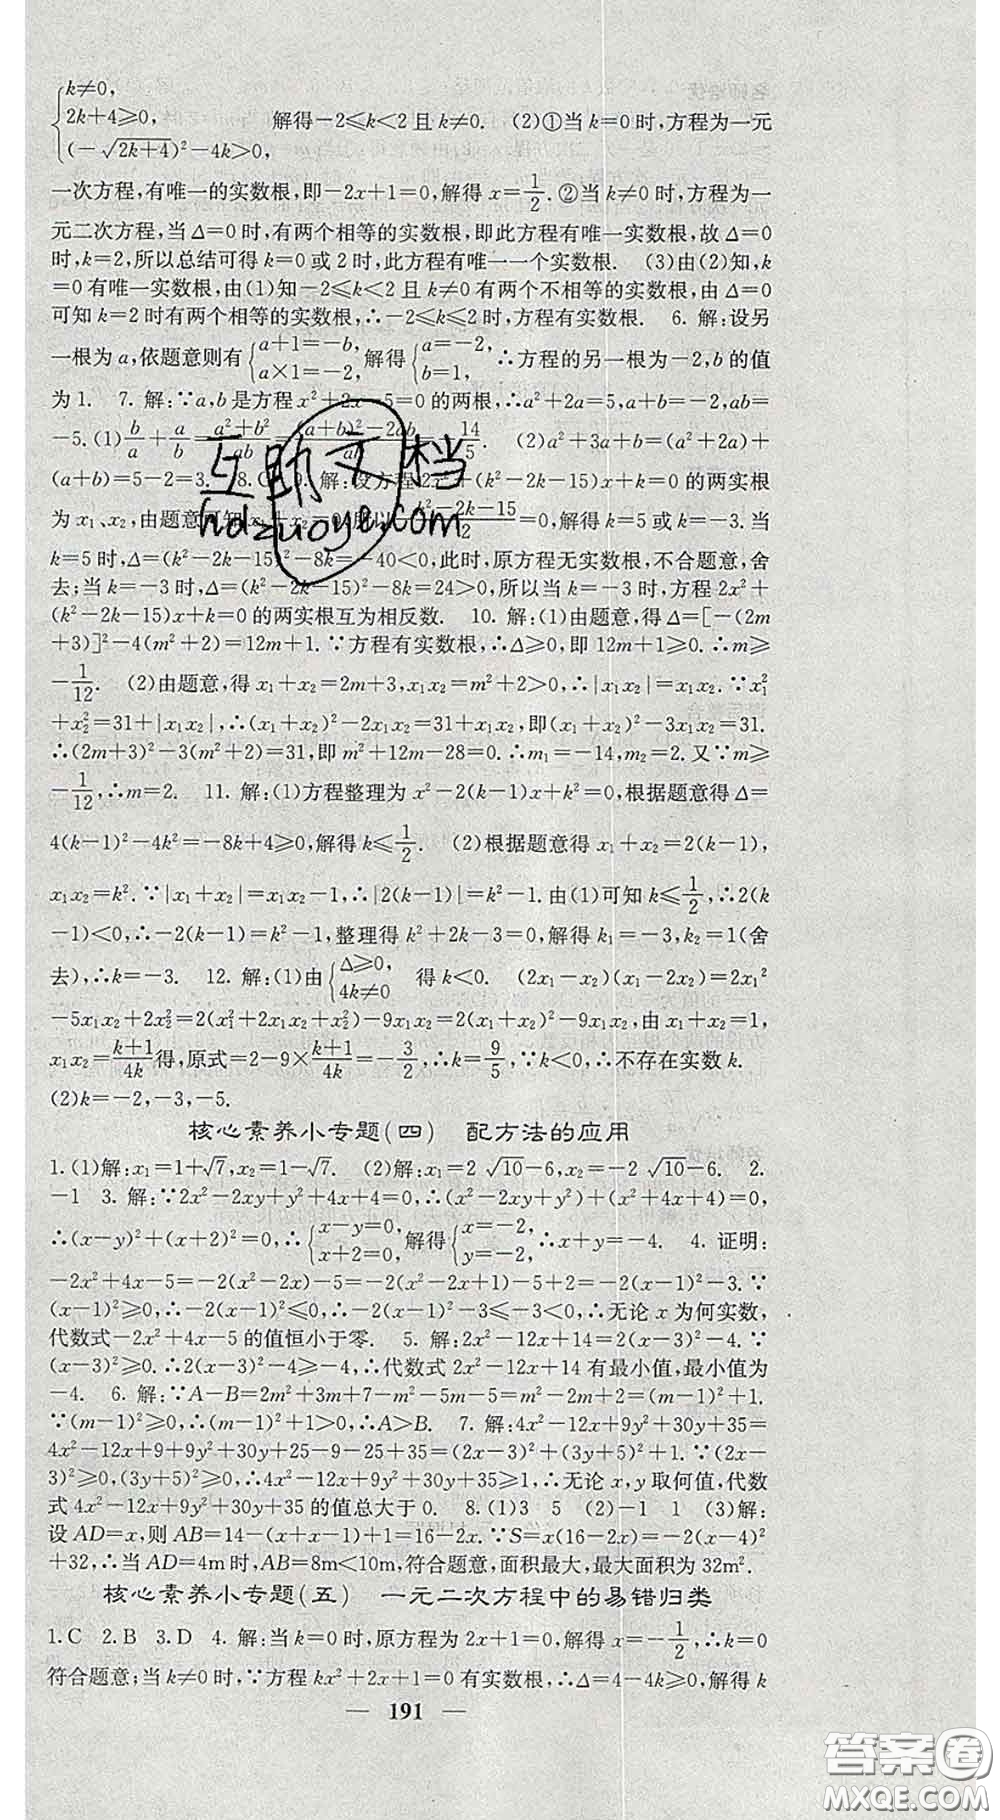 {k≠0,
2k+4≥0,   解得-2≤k<2且k≠0.   (2)①当k=0时,方程为一元
(-√(2k+4))²-4k>0,
一次方程,有唯一的实数根,即-2x+1=0,解得x=1/2.②当k≠0时,方程为一
元二次方程,当Δ=0时,有两个相等的实数根,即此方程有唯一实数根,故Δ=0
时,k=2,所以总结可得k=0或2时,此方程有唯一一个实数根.   (3)由(2)知,k
=0有唯一实数根,由(1)知-2≤k<2且k≠0有两个不相等的实数根,由Δ=0
可知k=2时有两个相等的实数根,∴-2≤k≤2时,方程有实数根.   6. 解:设另
一根为a,依题意则有{a+1=-b, a×1=-2,解得{a=-2, b=1,∴方程的另一根为-2,b的值
为1.   7. 解:∵a,b是方程x²+2x-5=0的两根,∴a²+2a=5,a+b=-2,ab=
-5.(1)b/a+a/b=(a²+b²)/ab=((a+b)²-2ab)/ab=-14/5.   (2)a²+3a+b=(a²+2a)+
(a+b)=5-2=3.   8.C   9. 解:设方程2x²+(k²-2k-15)x+k=0的两实根
为x₁、x₂,由题意可知x₁+x₂=0,所以-(k²-2k-15)/2=0,解得k=5或k=-3.当
k=5时,Δ=(k²-2k-15)²-8k=-40<0,此时,原方程无实数根,不合题意,舍
去;当k=-3时,Δ=(k²-2k-15)²-8k=24>0,所以当k=-3时,方程2x²+
(k²-2k-15)x+k=0的两实根互为相反数.   10. 解:(1)由题意,得Δ=[-(2m
+3)]²-4(m²+2)=12m+1.∵方程有实数根,∴Δ≥0,即12m+1≥0.∴m≥
-1/12.   (2)由题意,得x₁+x₂=2m+3,x₁x₂=m²+2>0,∴|x₁x₂|=x₁x₂.∵x₁²
+x₂²=31+|x₁x₂|,∴(x₁+x₂)²-2x₁x₂=31+x₁x₂,即(x₁+x₂)²-3x₁x₂=31.
∴(2m+3)²-3(m²+2)=31,即m²+12m-28=0.∴m₁=-14,m₂=2.又∵m≥
-1/12,∴m=2.   11. 解:(1)方程整理为x²-2(k-1)x+k²=0,根据题意得Δ=
4(k-1)²-4k²=-8k+4≥0,解得k≤1/2.   (2)根据题意得x₁+x₂=2(k-1),
x₁x₂=k².∵|x₁+x₂|=x₁x₂-1,∴|2(k-1)|=k²-1.由(1)可知k≤1/2,∴2(k
-1)<0,∴-2(k-1)=k²-1,整理得k²+2k-3=0,解得k₁=-3,k₂=1(舍
去),∴k=-3.   12. 解:(1)由{Δ≥0, 4k≠0 得k<0.   (2x₁-x₂)(x₁-2x₂)=2x₁²
-5x₁x₂+2x₂²=2(x₁²+2x₁x₂+x₂²)-9x₁x₂=2(x₁+x₂)²-9x₁x₂,由x₁+x₂=1,
x₁x₂=(k+1)/4k得,原式=2-9×(k+1)/4k=-3/2,∴k=9/5,∵k<0,∴不存在实数k.
(2)k=-2,-3,-5.
核心素养小专题(四)   配方法的应用
1.(1)解:x₁=1+√7,x₂=1-√7.   (2)解:x₁=2√10-6,x₂=-2√10-6.   2.
-1   3. 解:∵2x²-2xy+y²+4x+4=0,∴(x²-2xy+y²)+(x²+4x+4)=0,
∴(x-y)²+(x+2)²=0,∴{x-y=0, x+2=0,解得{x=-2, y=-2,∴x+y=-4.   4. 证明:
-2x²+4x-5=-2(x²-2x)-5=-2(x²-2x+1)-5+2=-2(x-1)²-3.∵
(x-1)²≥0,∴-2(x-1)²≤0,∴-2(x-1)²-3≤-3<0,∴无论x为何实数,
代数式-2x²+4x-5的值恒小于零.   5. 解:2x²-12x+14=2(x-3)²-4.∵
(x-3)²≥0.∴2(x-3)²-4≥-4,∴代数式2x²-12x+14有最小值,最小值为
-4.   6. 解:∵A-B=2m²+3m+7-m²-5m-5=m²-2m+2=(m-1)²+1.
∵(m-1)²≥0,∴(m-1)²+1>0,∴A>B.   7. 解:4x²-12x+9y²+30y+35=
4x²-12x+9+9y²+30y+25-9-25+35=(2x-3)²+(3y+5)²+1.∵(2x-
3)²≥0,(3y+5)²≥0,∴4x²-12x+9y²+30y+35≥1,∴无论x,y取何值,代数
式4x²-12x+9y²+30y+35的值总大于0.   8.(1)3   5   (2)-1   1   (3)解:
设AD=x,则AB=14-(x+x-1)+1=16-2x.∵S=x(16-2x)=-2(x-4)²
+32,∴当AD=4m时,AB=8m<10m,符合题意,面积最大,最大面积为32m².
核心素养小专题(五)   一元二次方程中的易错归类
1.C   2.B   3.D   4. 解:当k=0时,原方程为2x+1=0,解得x=-1/2,∴k=0
符合题意;当k≠0时,∵方程kx²+2x+1=0有实数根,∴Δ=4-4k≥0,解得k
— 191 —
互助文档
hdzuoye.com
答案圈
MXQE.COM